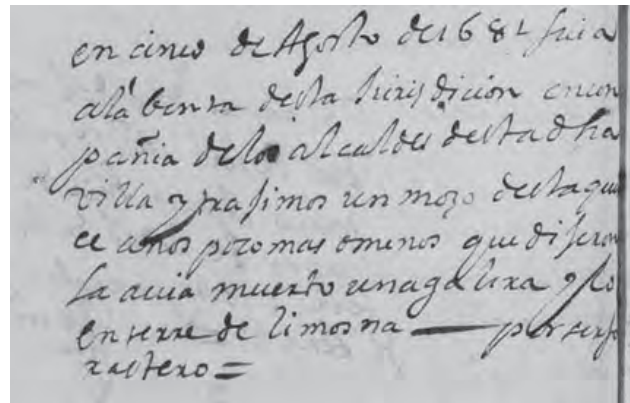 en cinco de Agosto de 1681 fui a
a la benta desta Jurisdicion encon
pañia de los alcaldes desta dha
villa y trajimos un mozo desta quin
ce anos poco mas o menos que dijeron
la auia muerto una galera y lo
enterre de limosna — por ser fo
rastero =